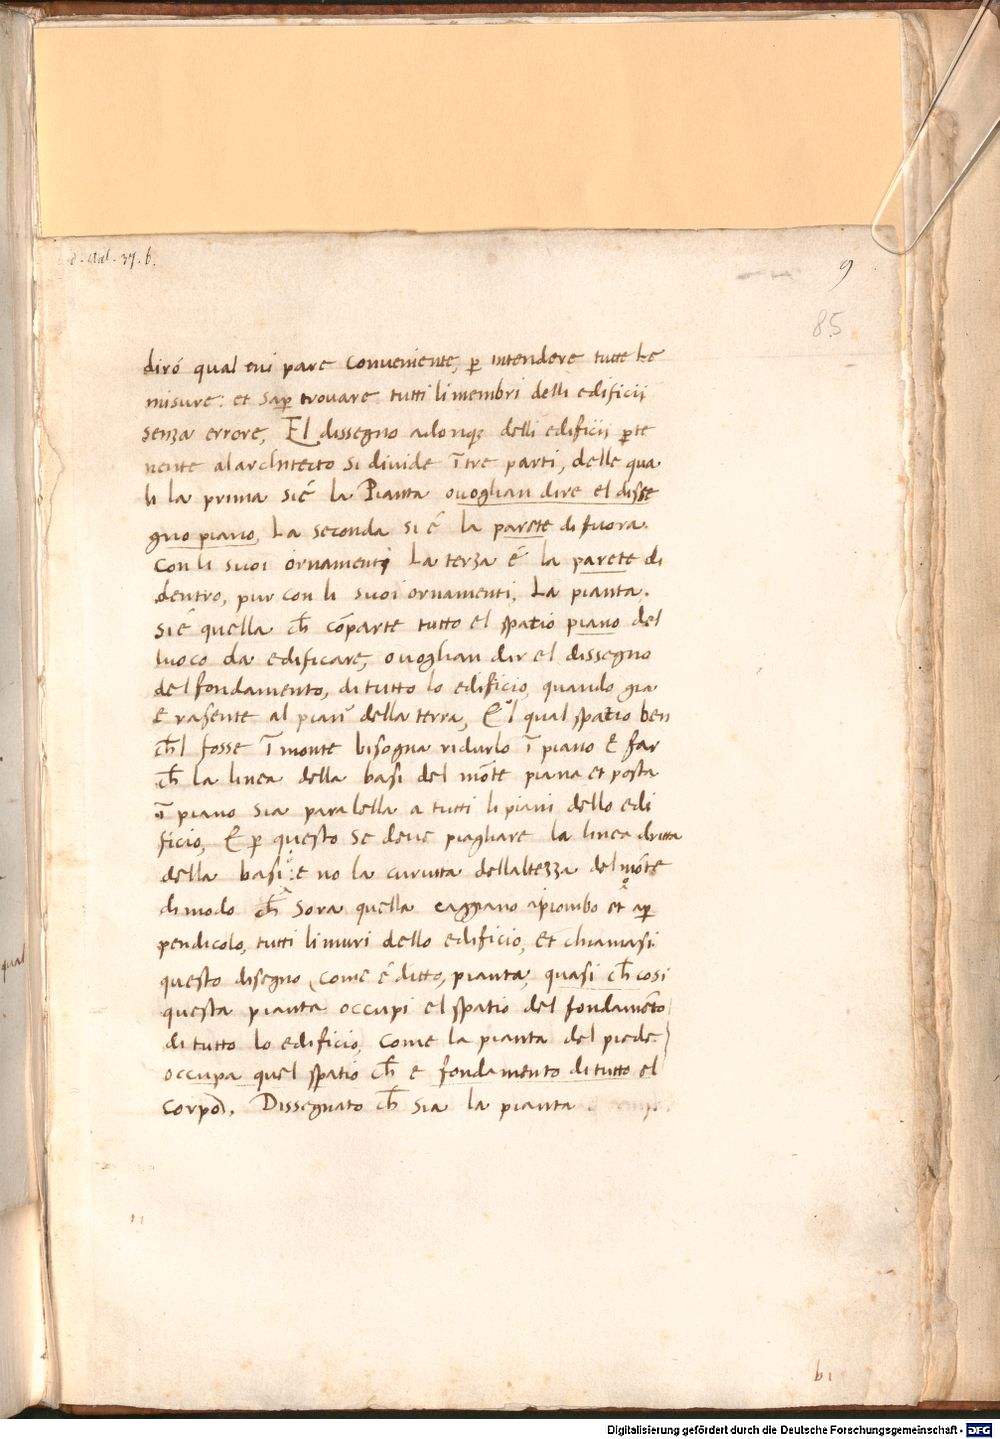 d. Ital. 37. b.
9
85
diró qual mi pare conveniente, p intendere tutte le
misure: et sap trovare tutti li membri delli edificii
senza errore, El dissegno adonqz delli edificii pte
nente al architecto si divide ī tre parti, delle qua
li la prima si é la Pianta o voglian dire el disse
gno piano, La seconda si é la parete di fuora.
con li suoi ornamenti La terza é la parete di
dentro, pur con li suoi ornamenti, La pianta.
si é quella ch̄ cōparte tutto el spatio piano del
luoco da edificare, o voglian dir el dissegno
del fondamento, di tutto lo edificio, quando gia
é rasente al pian della terra, E l qual spatio ben
ch̄l fosse ī monte bisogna ridurlo ī piano E far
ch̄ la linea della basi del mōte piana et posta
ī piano sia paralella a tutti li piani dello edi
ficio, E p questo se deve pigliare la linea dritta
della basi e no la curvita dellaltezza del mōte
di modo ch̄ sora quella caggiano apiombo et a p
pendicolo, tutti li muri dello edificio, et chiamasi
questo disegno, come é ditto, pianta, quasi ch̄ cosi
questa pianta occupi el spatio del fondamēto
di tutto lo edificio, come la pianta del piede
occupa quel spatio ch̄ e fondamento di tutto el
corpo, Dissegnato ch̄ sia la pianta
qual
b1
Digitalisierung gefördert durch die Deutsche Forschungsgemeinschaft - DFG